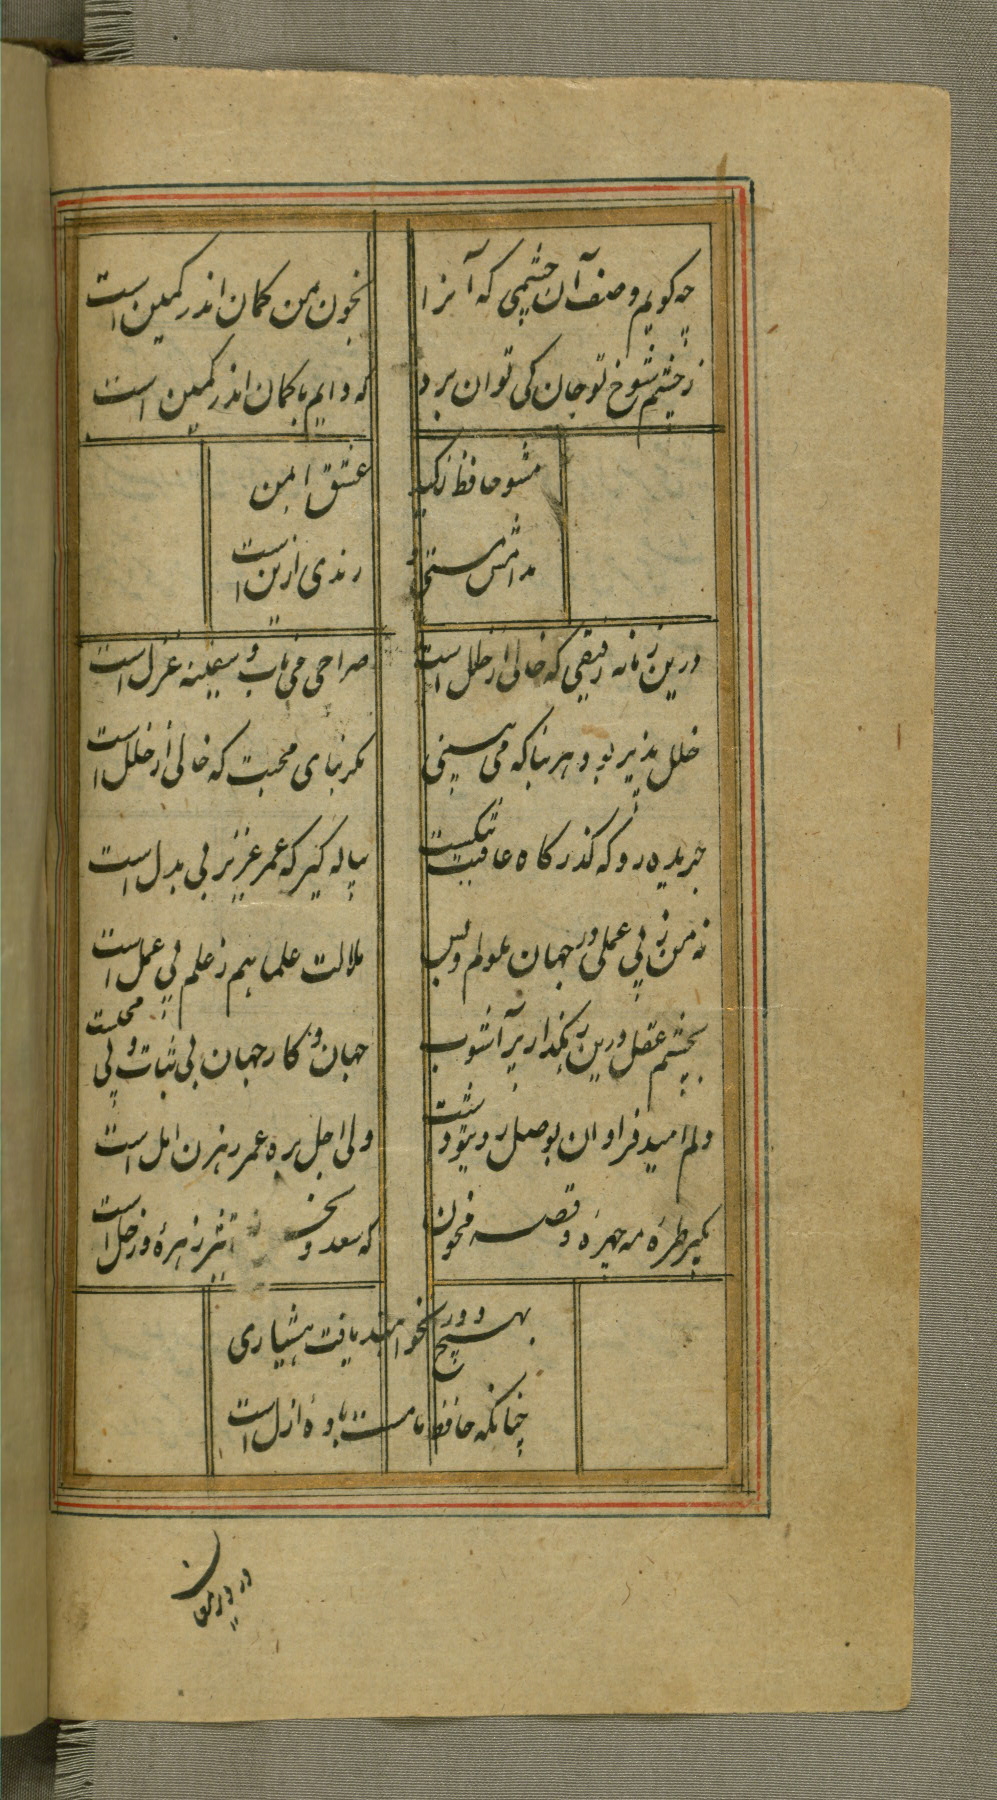 چه کویم وصف آن چشمی که آنرا بخون من کمان اندر کمین است
ز چشم شوخ تو جان کی توان برد که دایم با کمان اندر کمین است
مشو حافظ ز کید عشق ایمن
رندی ازین است
درین زمانه رفیقی که خالی از خلل است صراحی می ناب و سفینه غزل است
خلل پذیر بود هر بنا که می بینی مکر بنای محبت که خالی از خلل است
جریده رو که کذرکاه عافیت تنکست پیاله کیر که عمر عزیز بی بدل است
نه من ز بی عملی در جهان ملولم و بس ملالت علما هم ز علم بی عمل است
بچشم عقل درین رهکذار پر آشوب جهان و کار جهان بی ثبات و بی محلست
دلم امید فراوان بوصل روی تو داشت ولی اجل بره عمر رهزن امل است
بکیر طره مه چهره و قصه مخوان که سعد و نحس ز تاثیر زهره و زحل است
بهیچ دور نخواهند یافت هشیاری
چنانکه حافظ ما مست باده ازل است
در دیر مغان